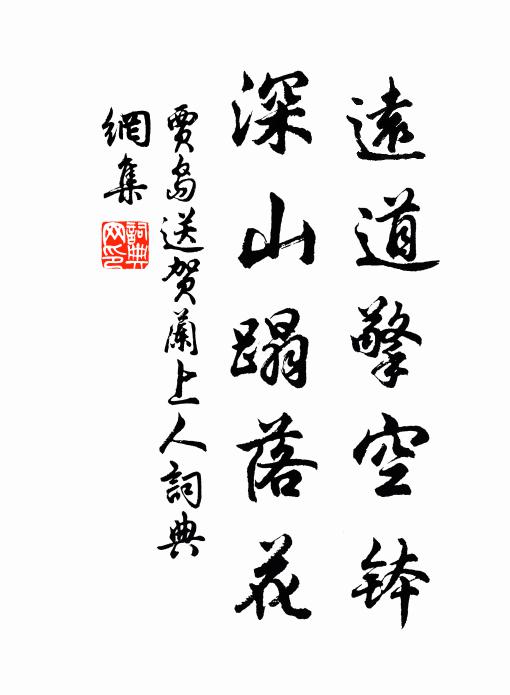 遠道擎空鉢
深山蹋落花
賈島送賀蘭上人詞典
網集
詞典网印